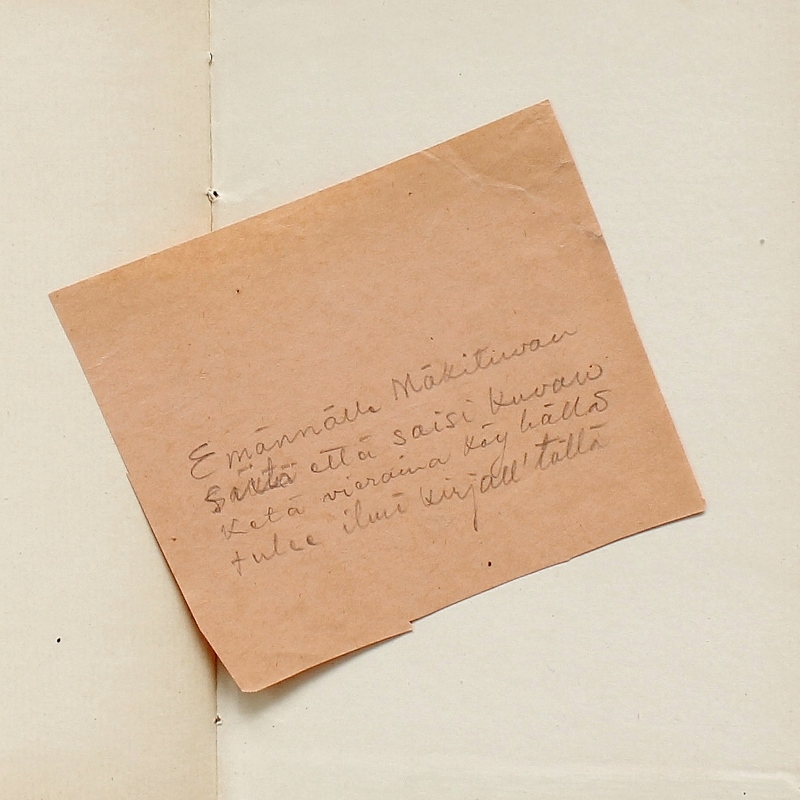 Emännälle Mäkituvan
siitä että saisi kuvaus
ketä vieraina käy hällä
tulee ilmi kirjall' tällä